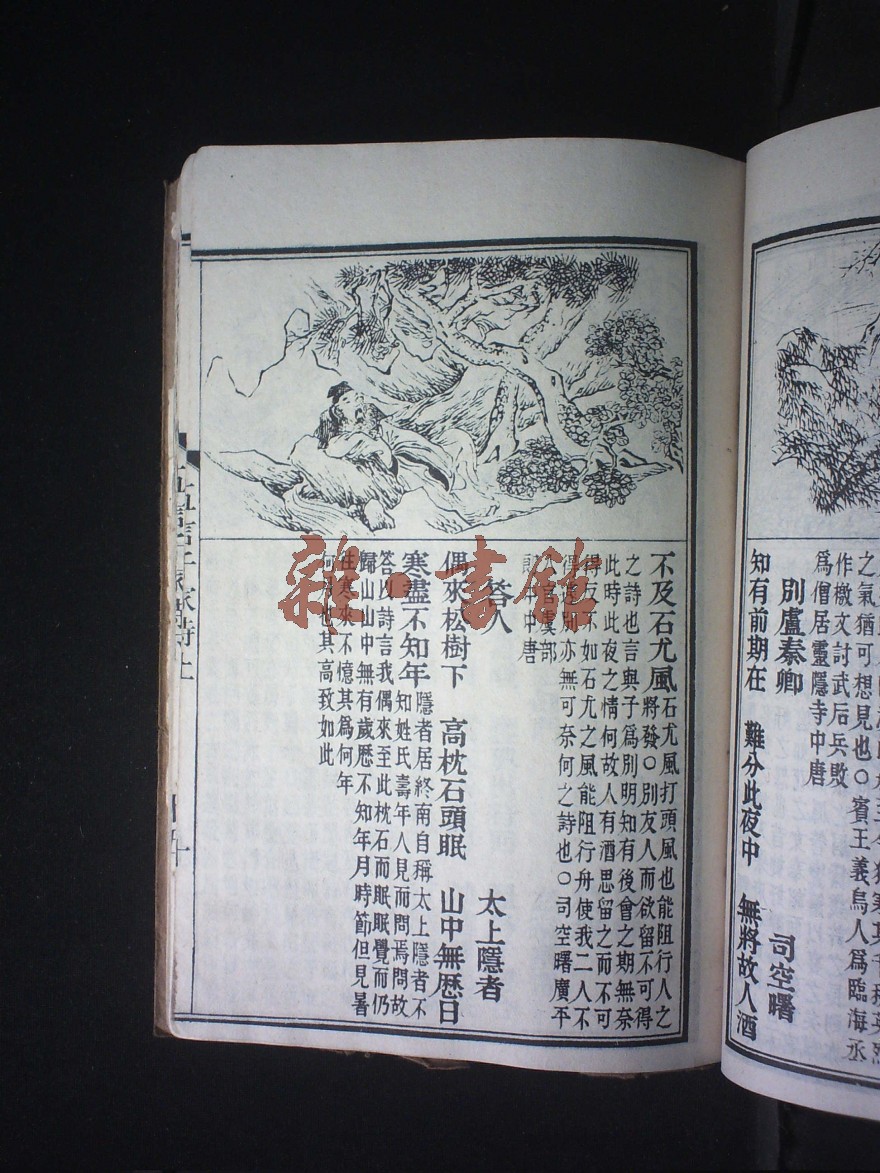 之氣猶可想見也〇賓王義烏人爲臨海丞
作檄文討武后兵敗
爲僧居靈隱寺中唐
別盧秦卿 司空曙
知有前期在 難分此夜中 無將故人酒
不及石尤風 石尤風打頭風也能阻行人之
將發〇別友人而欲留不可得
之詩也言與子爲別明知有後會之期無奈
此時此夜之情何故人有酒思留之而不可
得反不如石尤之風能阻行舟使我二人不
得遽別亦無可奈何之詩也〇司空曙廣平
人官虞部
郎中中唐
答人 太上隱者
偶來松樹下 高枕石頭眠 山中無歷日
寒盡不知年 隱者居終南自稱太上隱者不
知姓氏壽年人見而問焉問故
答以詩言我偶來至此枕石而眠眠覺而仍
歸山山中無有歲歷不知年月時節但見暑
往寒來不憶其爲何年
何月也其高致如此
五言千家詩上
雜·書館